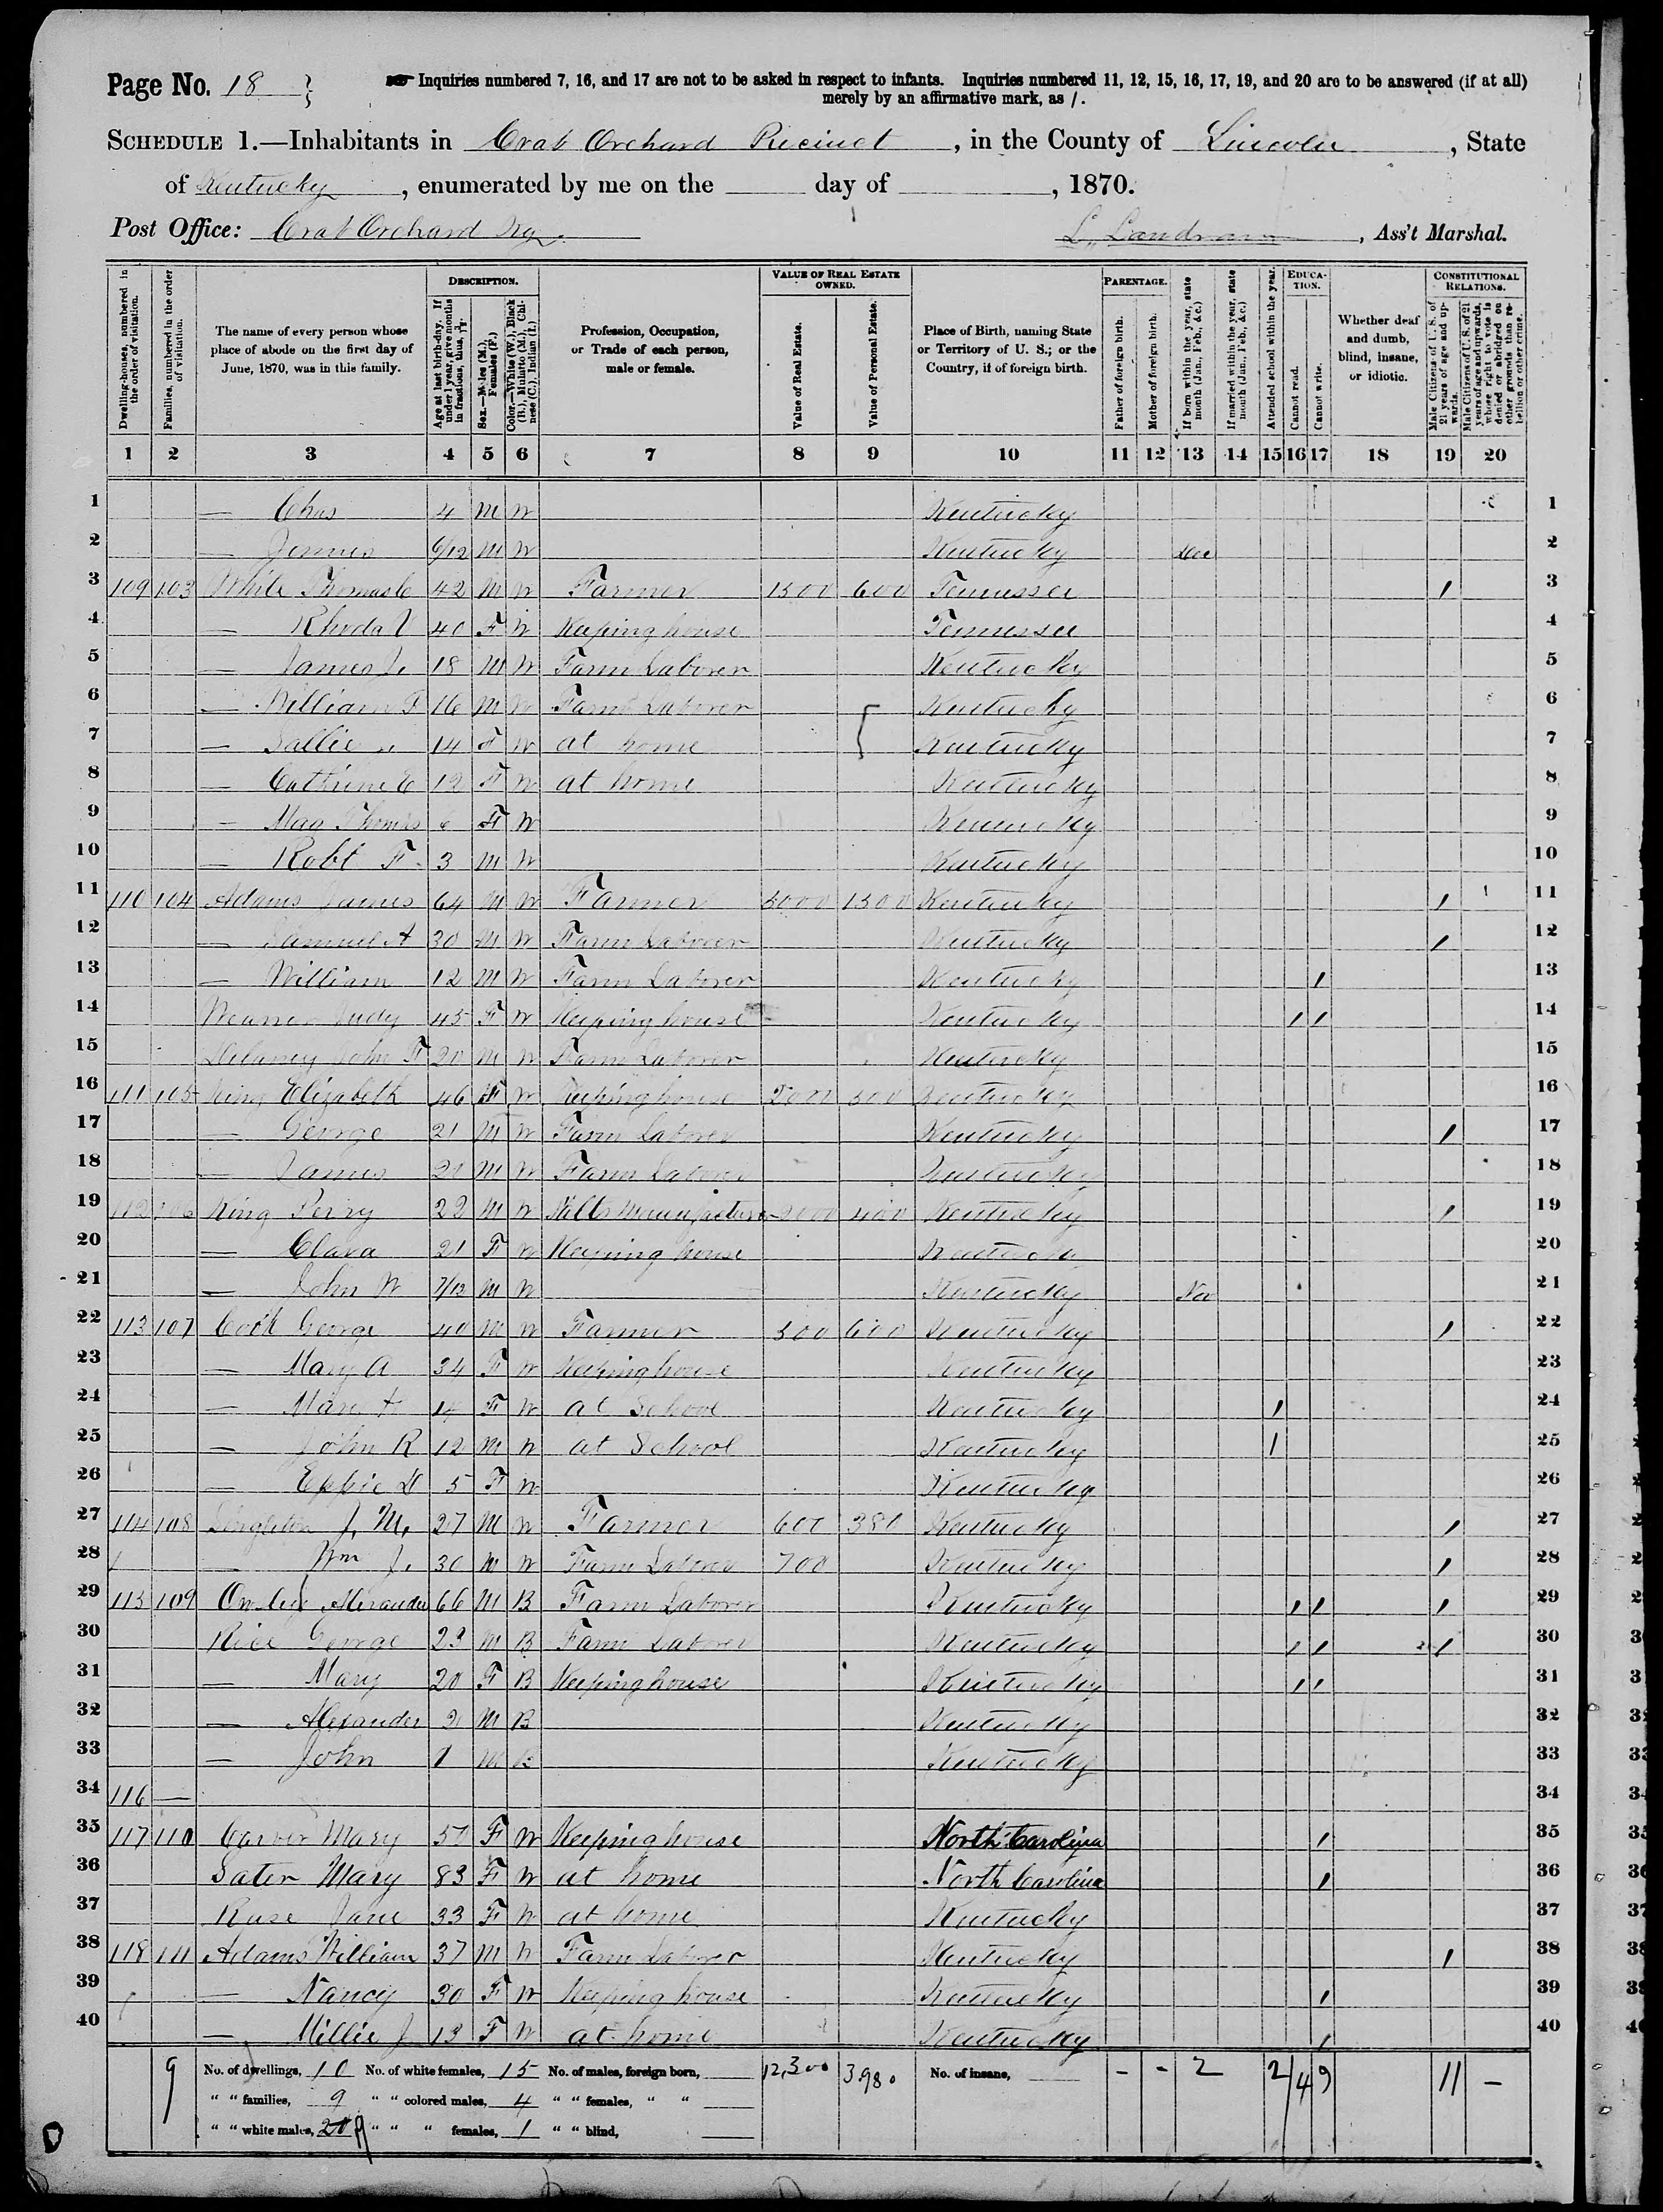 Page No. 18
Inquiries numbered 7, 16, and 17 are not to be asked in respect to infants. Inquiries numbered 11, 12, 15, 16, 17, 19, and 20 are to be answered (if at all)
merely by an affirmative mark, as /.
SCHEDULE 1.—Inhabitants in Crab Orchard Precinct, in the County of Lincoln, State
of Kentucky, enumerated by me on the day of , 1870.
Post Office: Crab Orchard Ky. L. Landram, Ass't Marshal.
DESCRIPTION. VALUE OF REAL ESTATE OWNED. PARENTAGE. EDUCATION. CONSTITUTIONAL RELATIONS.
Dwelling-houses, numbered in the order of visitation.
Families, numbered in the order of visitation.
The name of every person whose place of abode on the first day of June, 1870, was in this family.
Age at last birth-day. If under 1 year, give months in fractions, thus,
Sex.—Males (M.), Females (F.)
Color.—White (W.), Black (B.), Mulatto (M.), Chinese (C.), Indian (I.)
Profession, Occupation, or Trade of each person, male or female.
Value of Real Estate.
Value of Personal Estate.
Place of Birth, naming State or Territory of U. S.; or the Country, if of foreign birth.
Father of foreign birth.
Mother of foreign birth.
If born within the year, state month (Jan., Feb., &c.)
If married within the year, state month (Jan., Feb., &c.)
Attended school within the year.
Cannot read.
Cannot write.
Whether deaf and dumb, blind, insane, or idiotic.
Male Citizens of U. S. of 21 years of age and upwards.
Male Citizens of U. S. of 21 years of age and upwards, whose right to vote is denied or abridged on other grounds than rebellion or other crime.
1 2 3 4 5 6 7 8 9 10 11 12 13 14 15 16 17 18 19 20
1 — Chas 4 M W Kentucky 1
2 — James 6/12 M W Kentucky Dec 2
3 109 103 White Thomas C 42 M W Farmer 1500 600 Tennessee / 3
4 — Rhoda 40 F W Keeping house Tennessee 4
5 — James 18 M W Farm Laborer Kentucky 5
6 — William 16 M W Farm Laborer Kentucky 6
7 — Sallie 14 F W at home Kentucky 7
8 — Cathrine E 12 F W at home Kentucky 8
9 — May Thomas 6 F W Kentucky 9
10 — Robt F. 3 M W Kentucky 10
11 110 104 Adams James 64 M W Farmer 1500 Kentucky / 11
12 — Samuel A 30 M W Farm Laborer Kentucky / 12
13 — William 12 M W Farm Laborer Kentucky / 13
14 Judy 45 F W Keeping house Kentucky / / 14
15 Delaney John F 20 M W Farm Laborer Kentucky 15
16 111 105 King Elizabeth 46 F W Keeping house 500 Kentucky 16
17 — George 21 M W Farm Laborer Kentucky / 17
18 — James 20 M W Farm Laborer Kentucky 18
19 112 106 King Perry 22 M W 400 Kentucky / 19
20 — Clara 21 F W Keeping house Kentucky 20
21 — John W 7/12 M W Kentucky Nov 21
22 113 107 Cook George 40 M W Farmer 500 600 Kentucky / 22
23 — Mary A 34 F W Keeping house Kentucky 23
24 — 14 F W at School Kentucky / 24
25 — John R 12 M W at School Kentucky / 25
26 — Eppie D 5 F W Kentucky 26
27 114 108 Singleton J. M. 27 M W Farmer 600 380 Kentucky / 27
28 — Wm J. 30 M W Farm Laborer 700 Kentucky / 28
29 115 109 Owsley Alexander 66 M B Farm Laborer Kentucky / / / 29
30 Rice George 23 M B Farm Laborer Kentucky / / / 30
31 — Mary 20 F B Keeping house Kentucky / / 31
32 — Alexander 2 M B Kentucky 32
33 — John 1 M B Kentucky 33
34 116 — 34
35 117 110 Carver Mary 50 F W Keeping house North Carolina / 35
36 Mary 83 F W at home North Carolina / 36
37 Jane 33 F W at home Kentucky 37
38 118 111 Adams William 37 M W Farm Laborer Kentucky / 38
39 — Nancy 30 F W Keeping house Kentucky / 39
40 — Millie J 13 F W at home Kentucky / 40
9 No. of dwellings, 10 No. of white females, 15 No. of males, foreign born, 12,300 3980 No. of insane, - - 2 2 4 9 11 -
" " families, 9 " " colored males, 4 " " females, " "
" " white males, " " " females, 1 " " blind,